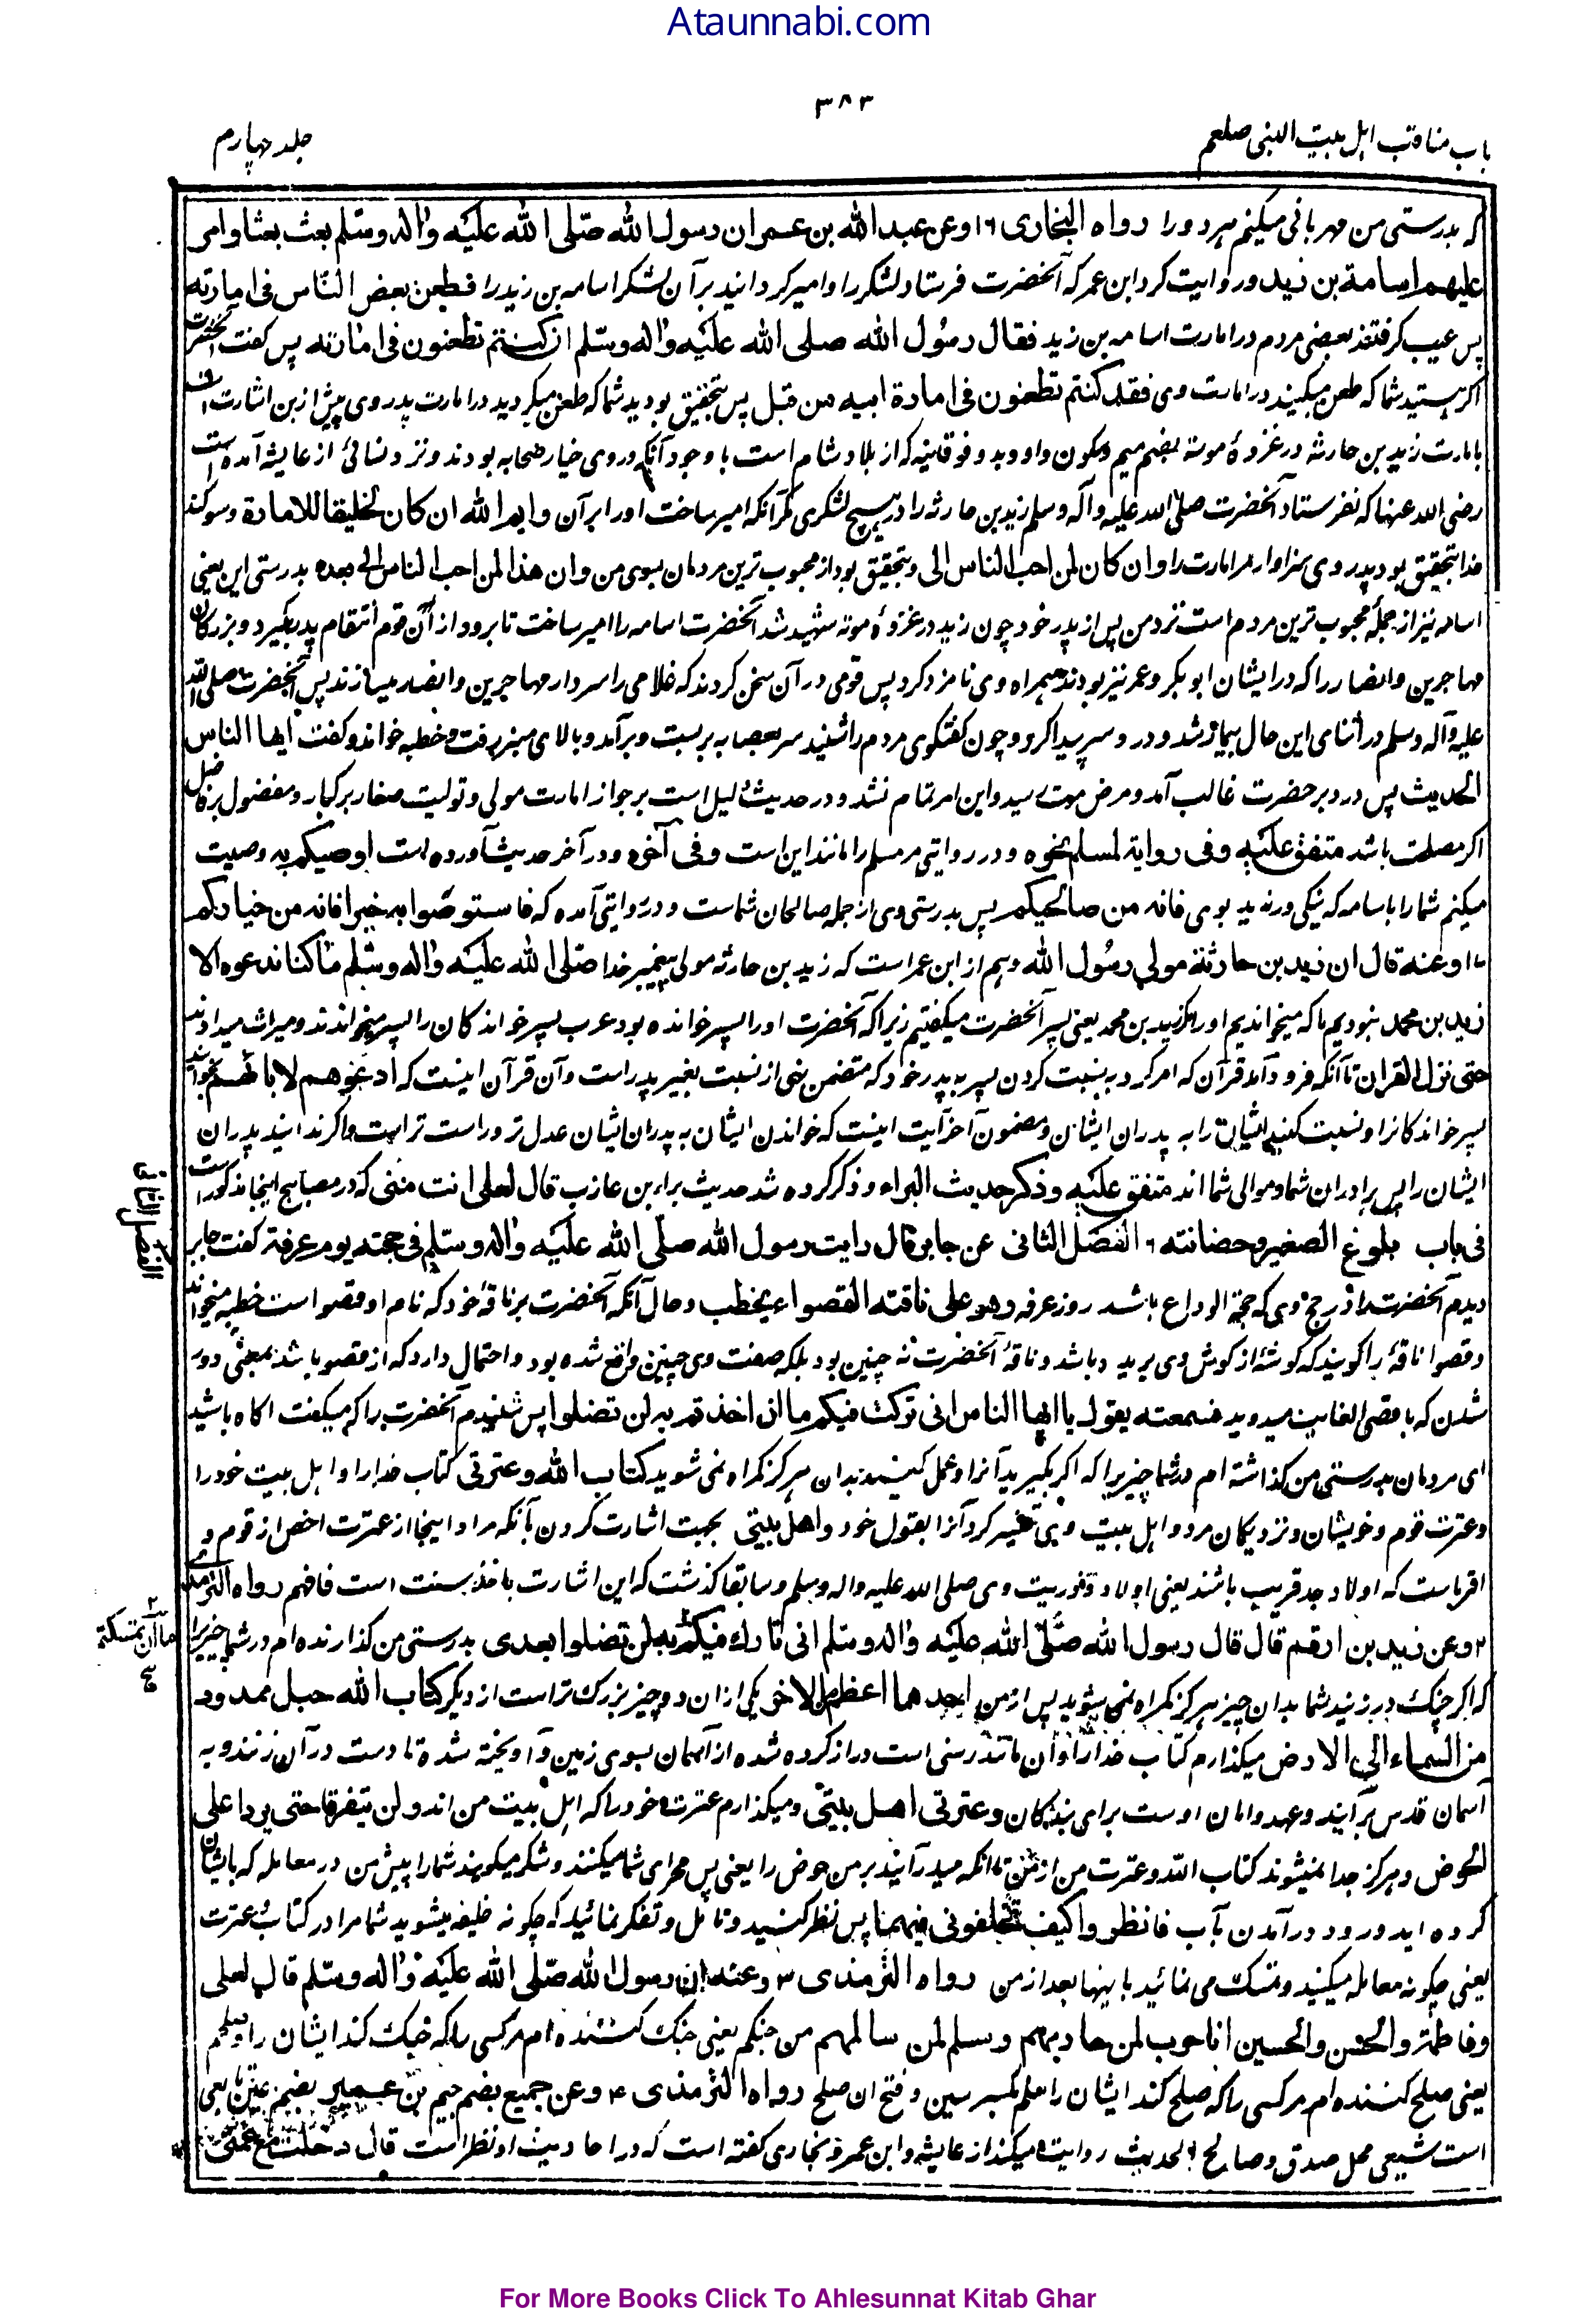 Ataunnabi.com
۳۸۳
باب مناقب اہل بیت النبی صلعم
جلد چہارم
کہ بدرستی من مہربانی میکنم ہردو را رواہ البخاری ۱۶ وعن عبد اللہ بن عمر ان رسول اللہ صلی اللہ علیہ واٰلہ وسلم بعث بعثا وامر
علیھم اسامۃ بن زید و روایت کرد ابن عمر کہ آنحضرت فرستاد لشکر را و امیر کردانید بر آن لشکر اسامہ بن زید را فطعن بعض الناس فی امارتہ
پس عیب کرفتند بعضی مردم در امارت اسامہ بن زید فقال رسول اللہ صلی اللہ علیہ واٰلہ وسلم ان کنتم تطعنون فی امارتہ پس کفت آنحضرت
اکر ہستید شما کہ طعن میکنید در امارت وی فقد کنتم تطعنون فی امارۃ ابیہ من قبل پس بتحقیق بودید شما کہ طعن میکردید در امارت پدر وی پیش ازین اشارت
بامارت زید بن حارثہ در غزوۂ موتہ بضم میم وسکون واو وبد وفوقانیہ کہ از بلاد شام است با وجود آنکہ در وی خیار صحابہ بودند ونزد نسائی از عایشہ آمدہ است
رضی اللہ عنہا کہ نفرستاد آنحضرت صلی اللہ علیہ وآلہ وسلم زید بن حارثہ را در ہیچ لشکری مکر آنکہ امیر ساخت او را بر آن وایم اللہ ان کان لخلیقا للامارۃ وسوکند
خدا بتحقیق بود پدر وی سزاوار مر امارت را وان کان لمن احب الناس الی وبتحقیق بود از محبوب ترین مردمان بسوی من وان ھذا لمن احب الناس الی بعدہ بدرستی این یعنی
اسامہ نیز از جملۂ محبوب ترین مردم است نزد من پس از پدر خود چون زید در غزوۂ موتہ شہید شد آنحضرت اسامہ را امیر ساخت تا برود از آن قوم انتقام پدر بکیرد وبزرکان
مہاجرین وانصار را کہ در ایشان ابوبکر وعمر نیز بودند ہمراہ وی نامزد کرد پس قومی در آن سخن کردند کہ غلامی را سردار مہاجرین وانصار میسازند پس آنحضرت صلی اللہ
علیہ وآلہ وسلم در اثنای این حال بیمار شد ودر د سر پیدا کرد وچون کفتکوی مردم را شنید سر بعصابہ بربست وبرآمد وبالای منبر رفت وخطبہ خواند وکفت ایھا الناس
الحدیث پس درد بر حضرت غالب آمد ومرض موت رسید واین امر تمام نشد ودر حدیث دلیل است بر جواز امارت مولی وتولیت صغار بر کبار ومفضول بر فاضل
اکر مصلحت باشد متفق علیہ وفی روایۃ لمسلم نحوہ ودر روایتی مر مسلم را مانند این است وفی آخرہ ودر آخر حدیث آوردہ است اوصیکم بہ وصیت
میکنم شما را باسامہ کہ نیکی ورزید بوی فانہ من صالحیکم پس بدرستی وی از جملہ صالحان شماست ودر روایتی آمدہ کہ فاستوصوا بہ خیرا فانہ من خیارکم
۱۷ وعنہ قال ان زید بن حارثۃ مولی رسول اللہ وہم از ابن عمر است کہ زید بن حارثہ مولی پیغمبر خدا صلی اللہ علیہ واٰلہ وسلم ما کنا ندعوہ الا
زید بن محمد نبودیم ما کہ میخواندیم او را مکر زید بن محمد یعنی پسر آنحضرت میکفتیم زیرا کہ آنحضرت او را پسر خواندہ بود وعرب پسر خواندکان را پسر میخواندند ومیراث میدادند
حتی نزل القران تا آنکہ فرود آمد قرآن کہ امر کرد بہ نسبت کردن پسر بہ پدر خود کہ متضمن نہی از نسبت بغیر پدر است وآن قرآن اینست کہ ادعوھم لاٰبائھم بخوانید
پسر خواندکانرا ونسبت کنید ایشان را بہ پدران ایشان ومضمون آخر آیت اینست کہ خواندن ایشان بہ پدران ایشان عدل تر وراست تر است واکر ندانید پدران
ایشان را پس برادران شما وموالی شما اند متفق علیہ وذکر حدیث البراء وذکر کردہ شد حدیث براء بن عازب قال لعلی انت منی کہ در مصابیح اینجا مذکور است
فی باب بلوغ الصغیر وحضانتہ ۶ الفصل الثانی عن جابر قال رایت رسول اللہ صلی اللہ علیہ واٰلہ وسلم فی حجتہ یوم عرفۃ کفت جابر
الفصل الثانی
دیدم آنحضرت را در حج وی کہ حجۃ الوداع باشد روز عرفہ وھو علی ناقتہ القصواء یخطب وحال آنکہ آنحضرت بر ناقۂ خود کہ نام او قصوا است خطبہ میخواند
وقصوا ناقۂ را کویند کہ کوشۂ از کوش وی بریدہ باشد وناقۂ آنحضرت نہ چنین بود بلکہ صفت وی چنین واقع شدہ بود واحتمال دارد کہ از قصو باشد بمعنی دور
شدن کہ با قصی الغایت میدوید فسمعتہ یقول یا ایھا الناس انی ترکت فیکم ما ان اخذتم بہ لن تضلوا پس شنیدم آنحضرت را کہ میکفت اکاہ باشید
ای مردمان بدرستی من کذاشتہ ام در شما چیزیرا کہ اکر بکیرید آنرا وعمل کنید بدان ہرکز کمراہ نمی شوید کتاب اللہ وعترتی کتاب خدا را واہل بیت خود را
وعترت قوم وخویشان ونزدیکان مرد واہل بیت وی تفسیر کرد آنرا بقول خود واھل بیتی بجہت اشارت کردن بآنکہ مراد اینجا از عترت اخص از قوم و
اقرباست کہ اولاد جد قریب باشند یعنی اولاد وذوریت وی صلی اللہ علیہ والہ وسلم وسابقا کذشت کہ این اشارت باخذ سنت است فافہم رواہ الترمذی
۲ وعن زید بن ارقم قال قال رسول اللہ صلی اللہ علیہ واٰلہ وسلم انی تارک فیکم بہ لن تضلوا بعدی بدرستی من کذارندہ ام در شما چیزیرا
ما ان تمسکتم
کہ اکر چنک در زنید شما بدان چیز ہرکز کمراہ نمی شوید پس از من احدھما اعظم من الاخر یکی ازان دو چیز بزرک تر است از دیکر کتاب اللہ حبل ممدود
من السماء الی الارض میکذارم کتاب خدا را وآن مانند رسنی است دراز کردہ شدہ از آسمان بسوی زمین وآویختہ شدہ تا دست در آن زنند وبہ
آسمان قدس برآیند وعہد وامان اوست برای بندکان وعترتی اھل بیتی ومیکذارم عترت خود را کہ اہل بیت من اند ولن یتفرقا حتی یردا علی
الحوض وہرکز جدا نمیشوند کتاب اللہ وعترت من از من تا آنکہ میدرآیند بر من حوض را یعنی پس مجرای شما میکنند وشکر میکویند شما را پیش من در معاملہ کہ بایشان
کردہ اید ورود درآمدن بآب فانظروا کیف تخلفونی فیھما پس نظر کنید وتامل وتفکر نمائید کہ چکونہ خلیفہ میشوید شما مرا در کتاب وعترت
یعنی چکونہ معاملہ میکنید وتمسک می نمائید باینہا بعد از من رواہ الترمذی ۳ وعنہ ان رسول اللہ صلی اللہ علیہ واٰلہ وسلم قال لعلی
وفاطمۃ والحسن والحسین انا حرب لمن حاربھم وسلم لمن سالمھم من جنکم یعنی جنک کنندہ ام مر کسی را کہ جنک کند ایشان را وسلم
یعنی صلح کنندہ ام مر کسی را کہ صلح کند ایشان را سلم بکسر سین وفتح ان صلح رواہ الترمذی ۴ وعن جمیع بضم جیم بن عمیر بضم عین تابعی
است شیعی محل صدق وصالح الحدیث روایت میکند از عایشہ وابن عمر وبخاری کفتہ است کہ در احادیث او نظر است قال دخلت مع عمتی
For More Books Click To Ahlesunnat Kitab Ghar